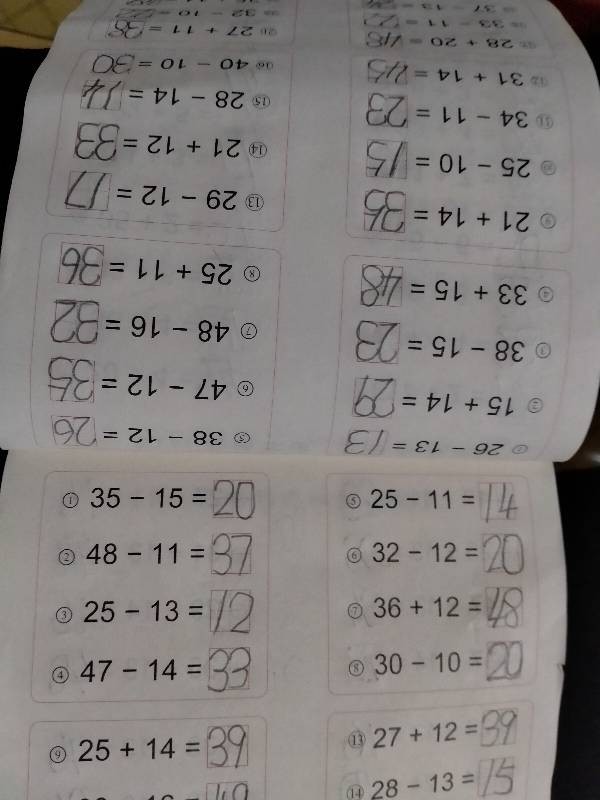 ① 26 − 13 = 13
② 15 + 14 = 29
③ 38 − 15 = 23
④ 33 + 15 = 48
⑤ 38 − 12 = 26
⑥ 47 − 12 = 35
⑦ 48 − 16 = 32
⑧ 25 + 11 = 36
⑨ 21 + 14 = 35
⑩ 25 − 10 = 15
⑪ 34 − 11 = 23
⑫ 31 + 14 = 45
⑬ 29 − 12 = 17
⑭ 21 + 12 = 33
⑮ 28 − 14 = 14
⑯ 40 − 10 = 30
28 + 20 = 48
33 − 11 = 22
37 − 13 =
27 + 11 = 38
32 − 10 =
① 35 − 15 = 20
② 48 − 11 = 37
③ 25 − 13 = 12
④ 47 − 14 = 33
⑤ 25 − 11 = 14
⑥ 32 − 12 = 20
⑦ 36 + 12 = 48
⑧ 30 − 10 = 20
⑨ 25 + 14 = 39
⑬ 27 + 12 = 39
⑭ 28 − 13 = 15